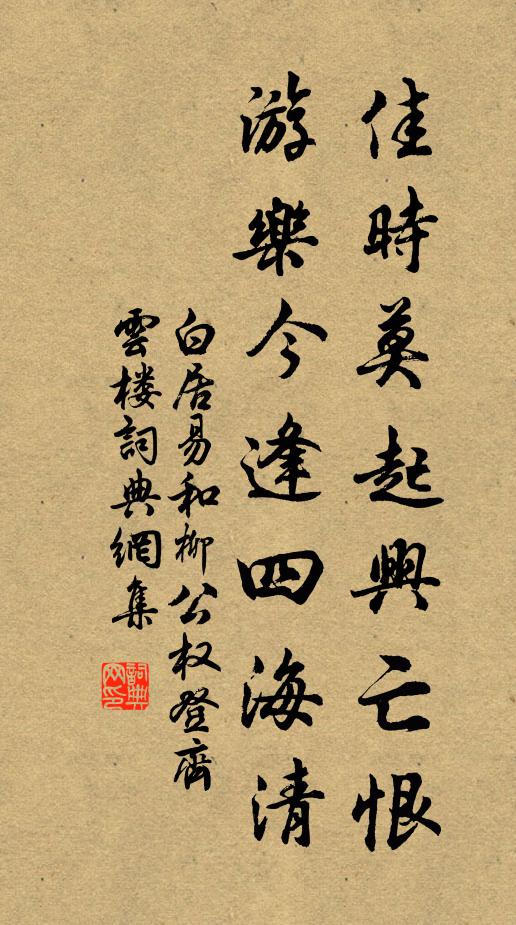 佳時莫起興亡恨
游樂今逢四海清
白居易和柳公权登齊
雲楼詞典網集
詞典网印